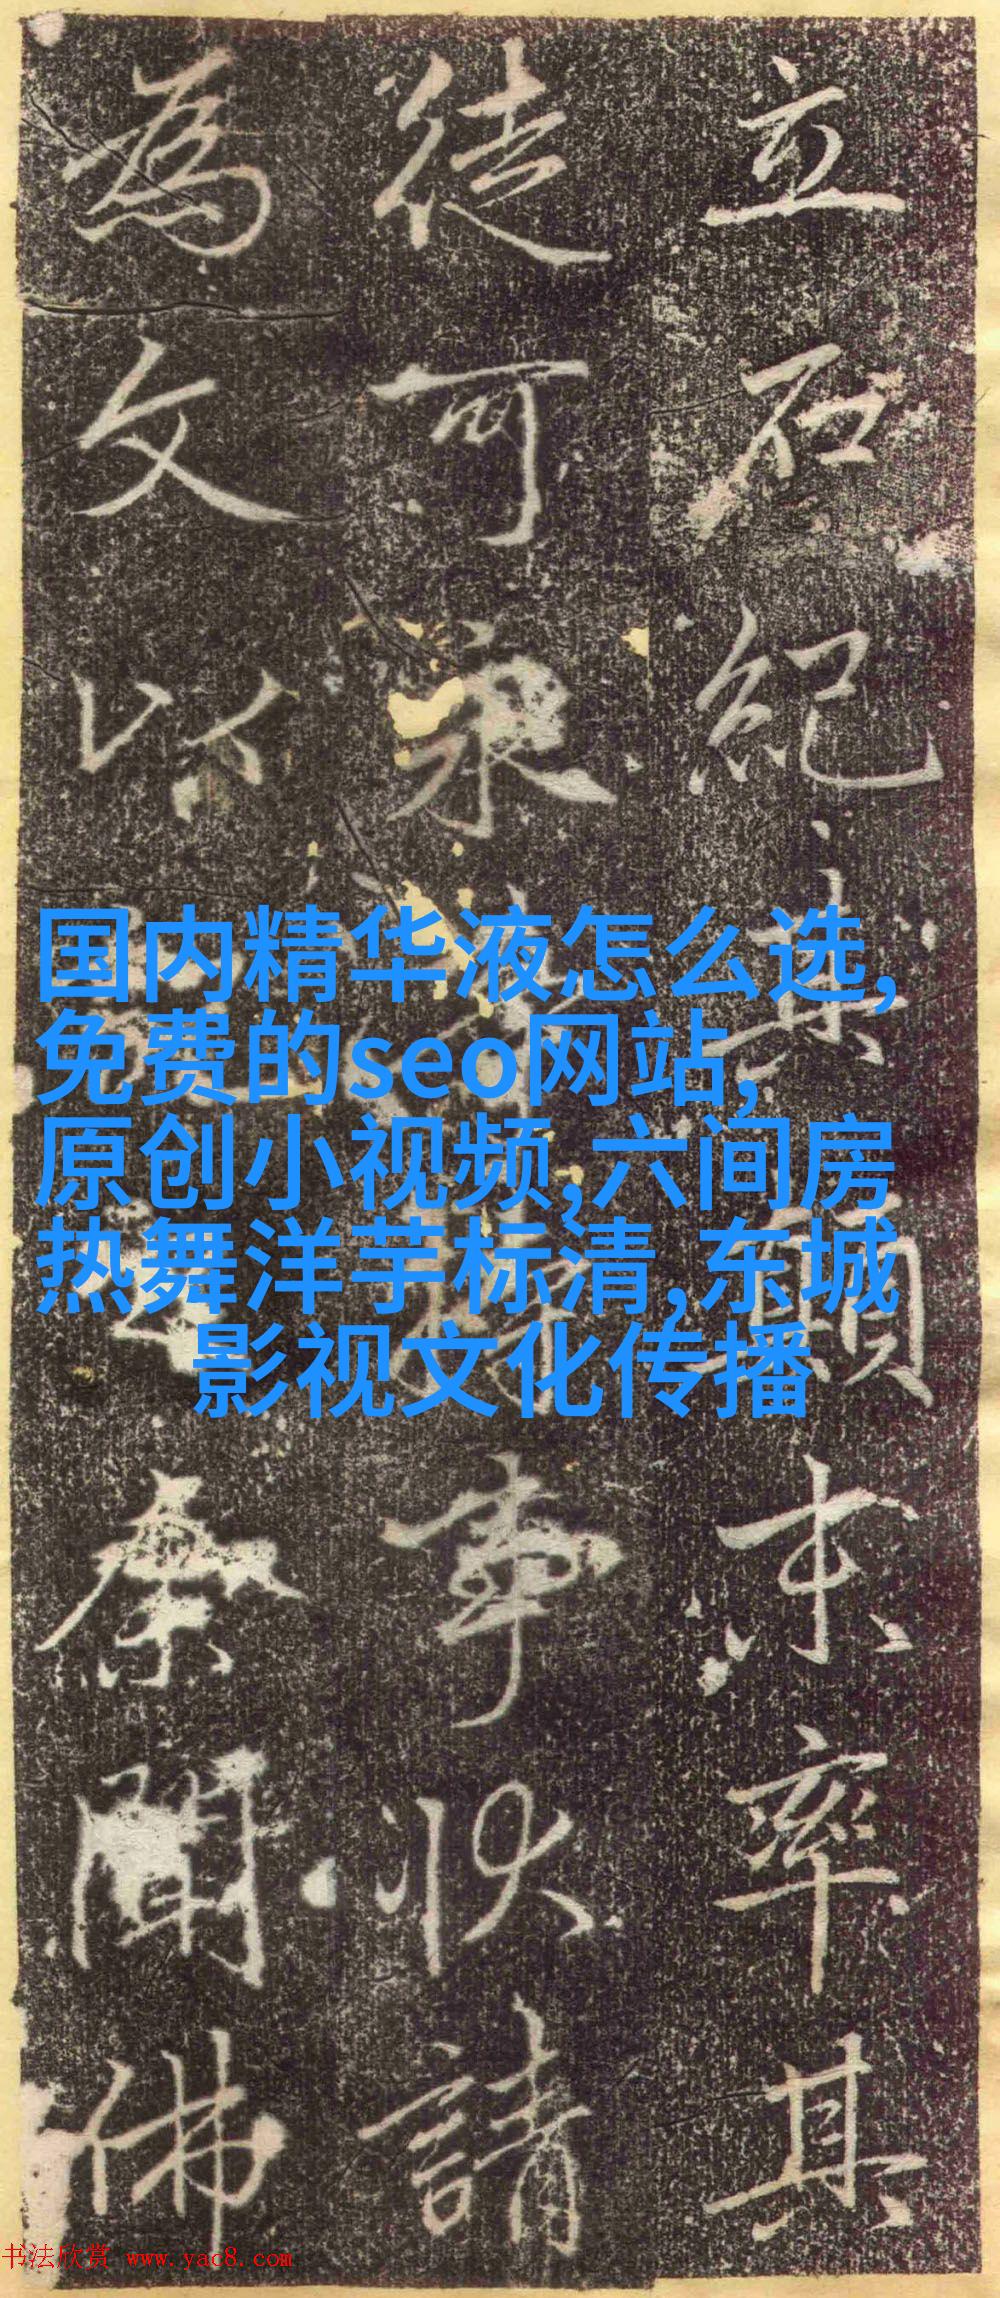 立石紀其顛末率其
徒可永事狀請
為文以聞佛
国内精华液怎么选,
免费的seo网站,
原创小视频,六间房
热舞洋芋标清,东城
影视文化传播
书法欣赏 www.yac8.com